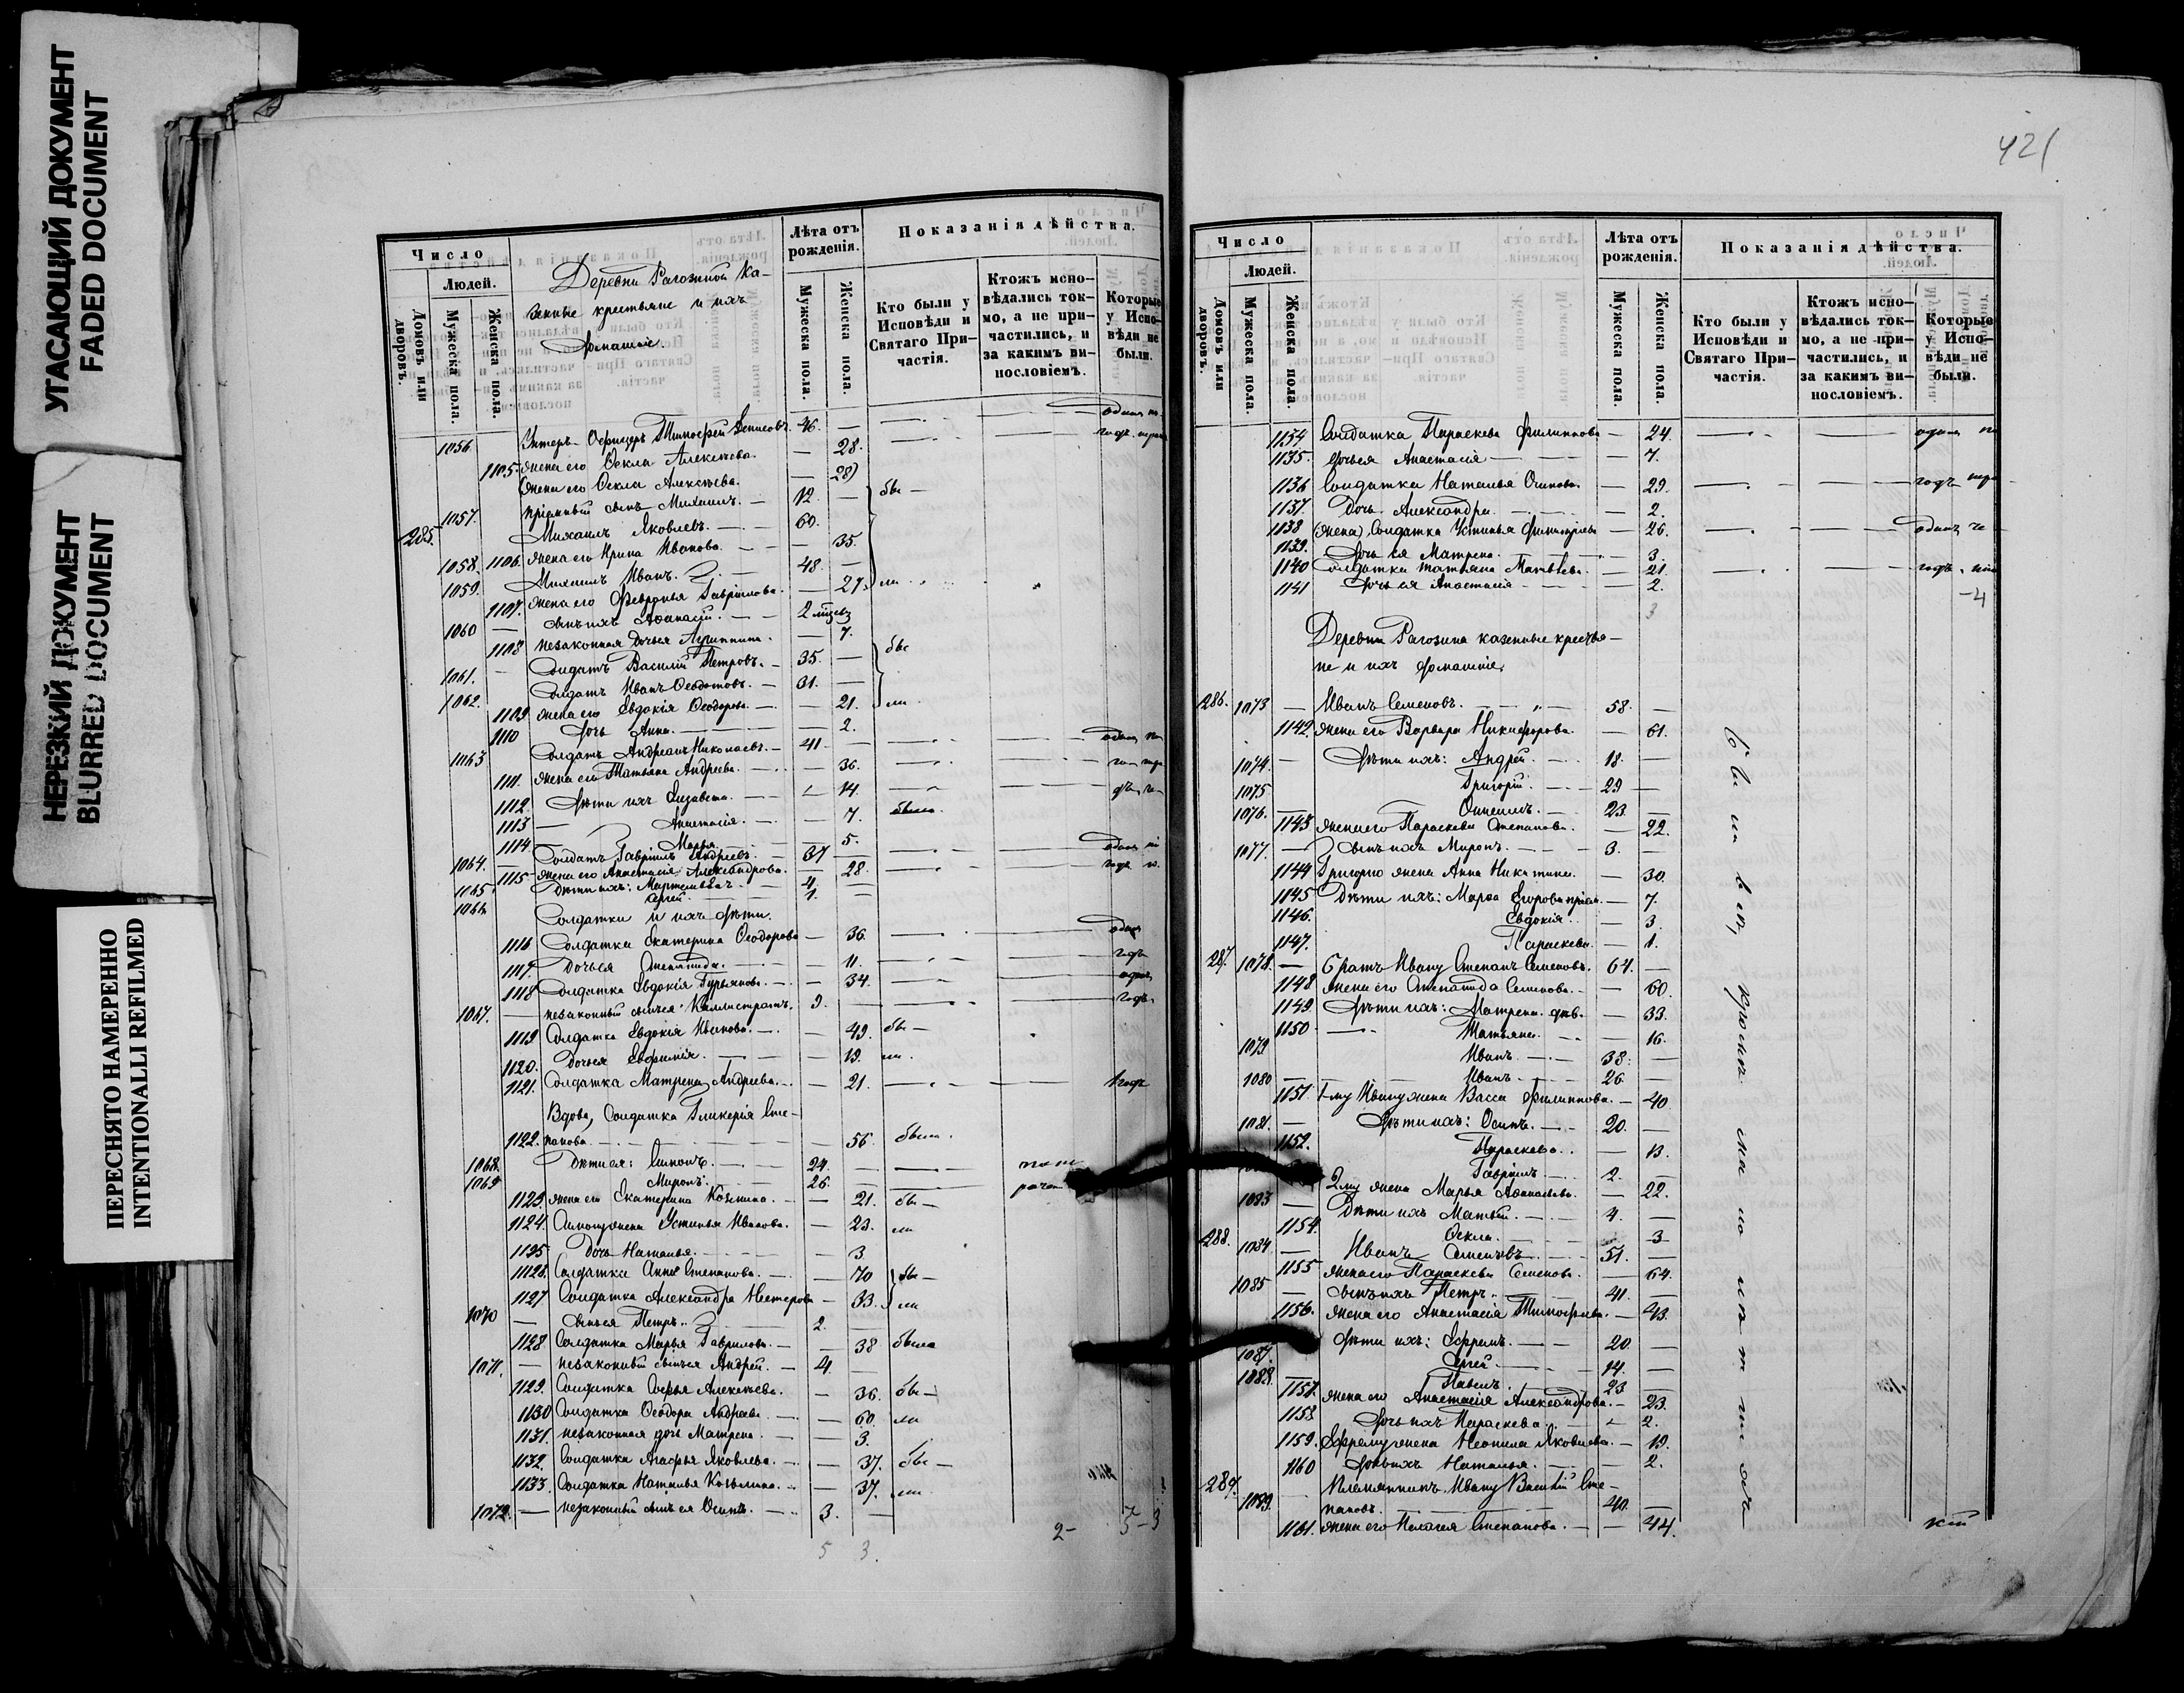 УГАСАЮЩИЙ ДОКУМЕНТ
FADED DOCUMENT
НЕРЕЗКИЙ ДОКУМЕНТ
BLURRED DOCUMENT
ПЕРЕСНЯТО НАМЕРЕННО
INTENTIONALLI REFILMED
Число
Людей.
Домовъ или дворовъ.
Мужеска пола.
Женска пола.
Деревни Рагозиной Ка-
зенные крестьяне и ихъ
домашніе.
Лѣта отъ рожденія.
Мужеска пола.
Женска пола.
Показанія дѣйства.
Кто были у Исповѣди и Святаго При-частія.
Ктожъ испо-вѣдались ток-мо, а не при-частились, и за какимъ ви-нословіемъ.
Которые у Испо-вѣди не были.
1056. Унтеръ-Офицеръ Тимофей Денисовъ. 46. —
1105. жена его Ѳекла Алексѣева. — 28.
жена его Ѳекла Алексѣева. — 28)
1057. пріемный сынъ Михаилъ. — 12. — бы —
285. 1058. Михаилъ Яковлевъ. — 60.
1106. жена его Ирина Иванова. — 35.
1059. Михаилъ Иванъ. 48. —
1107. жена его Февронья Гавріилова. — 27. ли
1060 — сынъ ихъ Аѳанасій. — 2 мѣсец.
1108 незаконная дочь ея — 7.
1061. — Солдатъ Василій Петровъ. — 35. — бы
1062. Солдатъ Иванъ Ѳедотовъ. — 31. —
1109. жена его Евдокія Ѳеодорова. — 21. ли
1110 Дочь Анна. — 2.
1063 Солдатъ Андреянъ Николаевъ. — 41. —
1111. жена его Татьяна Андреева. — 36.
1112. Дѣти ихъ Елизавета. — 14.
1113 — Анастасія. — 7. были
1114 — Марья. — 5.
1064. Солдатъ Гавріилъ Андреевъ. — 37 —
1115 жена его Анастасія Александрова. — 28.
1065. Дѣти ихъ: 4.
1066 Сергей. — 1.
Солдатки и ихъ дѣти.
1116 Солдатка Екатерина Ѳеодорова — 36.
1117. Дочь ея Степанида. — 11.
1118 Солдатка Евдокія — 34.
1067. — незаконный сынъ ея Каллистратъ. 9. —
1119 Солдатка Евдокія Иванова. — 49. бы —
1120. Дочь ея Евфимія. — 19. ли.
1121. Солдатка Матрена Андреева. — 21. 1 годъ
Вдова, Солдатка Гликерія Сте-
1122. панова. — 56. была.
1068. Дѣти ея: Симонъ. — 24. —
1069 Миронъ. 26. —
1123. жена его Екатерина Козмина. — 21. бы —
1124. Симону жена Устинья Иванова. — 23. ли
1125 Дочь Наталья. — 3.
1126. Солдатка Анна Степанова. — 70 бы —
1127 Солдатка Александра Нестерова — 33. ли
1070 — сынъ ея Петръ. 2.
1128. Солдатка Марья Гаврилова. — 38 была
1071. — незаконный сынъ ея Андрей. — 4. —
1129. Солдатка Софья Алексѣева. — 36. бы —
1130 Солдатка Ѳеодора Андреева — 60. ли
1131. незаконная дочь Матрена. — 3.
1132. Солдатка Агафья Яковлева. — 37. бы —
1133. Солдатка Наталья Козмина. — 37. ли.
1072. — незаконный сынъ ея Осипъ. — 3. —
5 3.
2- 5-3
421
Число
Людей.
Домовъ или дворовъ.
Мужеска пола.
Женска пола.
Лѣта отъ рожденія.
Мужеска пола.
Женска пола.
Показанія дѣйства.
Кто были у Исповѣди и Святаго При-частія.
Ктожъ испо-вѣдались ток-мо, а не при-частились, и за какимъ ви-нословіемъ.
Которые у Испо-вѣди не были.
1134 Солдатка Параскева Филиппова — 24.
1135. Дочь ея Анастасія — 7.
1136 Солдатка Наталья Осипова. — 29. годъ
1137. Дочь Александра. — 2.
1138 (жена) Солдатка Устинья — 26. одинъ
1139. Дочь ея Матрена. — 3.
1140 Солдатка Татьяна Матвѣева. — 21. годъ
1141 Дочь ея Анастасія — 2.
3
-4
Деревни Рагозина казенные крестья-
не и ихъ домашніе.
286. 1073 — Иванъ Семеновъ. 58. —
1142. жена его Варвара Никифорова. — 61.
1074. — Дѣти ихъ: Андрей. — 18. —
1075 Григорій. — 29 —
1076. — 23. —
1143 жена его Параскева Степанова. — 22.
1077. — Сынъ ихъ Миронъ. — 3. —
1144 Григорію жена Анна Никитина. — 30.
1145 Дѣти ихъ: Марѳа Егорова пріем. — 7.
1146. Евдокія. — 3.
1147. Параскева. — 1.
287. 1078. — Братъ Ивану Степанъ Семеновъ. 64. —
1148 жена его Степанида Семенова. — 60.
1149. Дѣти ихъ: Матрена дѣв. — 33.
1150 Татьяна. — 16.
1079 Иванъ. — 38. —
1080 — Иванъ. — 26. —
1151. 1-му Ивану жена Васса Филиппова. — 40
1081. — Дѣти ихъ: Осипъ. — 20. —
1152. Параскева. — 13.
Гавріилъ. — 2. —
2му жена Марья Аѳанасьева. — 22.
1083 — Дѣти ихъ Матвѣй. — 4. —
1154. Ѳекла. — 3
288. 1084. — Иванъ Семеновъ. — 51. —
1155 жена его Параскева Семенова. — 64.
1085 — сынъ ихъ Петръ. 41. —
1156. жена его Анастасія Тимофеева. — 43.
Дѣти ихъ: Ефремъ. — 20. —
1087. Сергей. — 14. —
1088. — Павелъ. 23 —
1157. жена его Анастасія Александрова. — 23.
1158 Дочь ихъ Параскева. — 2.
1159. Ефрему жена Неонила Яковлева. — 19.
1160 Дочь ихъ Наталья. — 2.
289. 1089. Племянникъ Ивану Василій Сте-
пановъ. — 40. —
1161. жена его Пелагея Степанова. — 44.